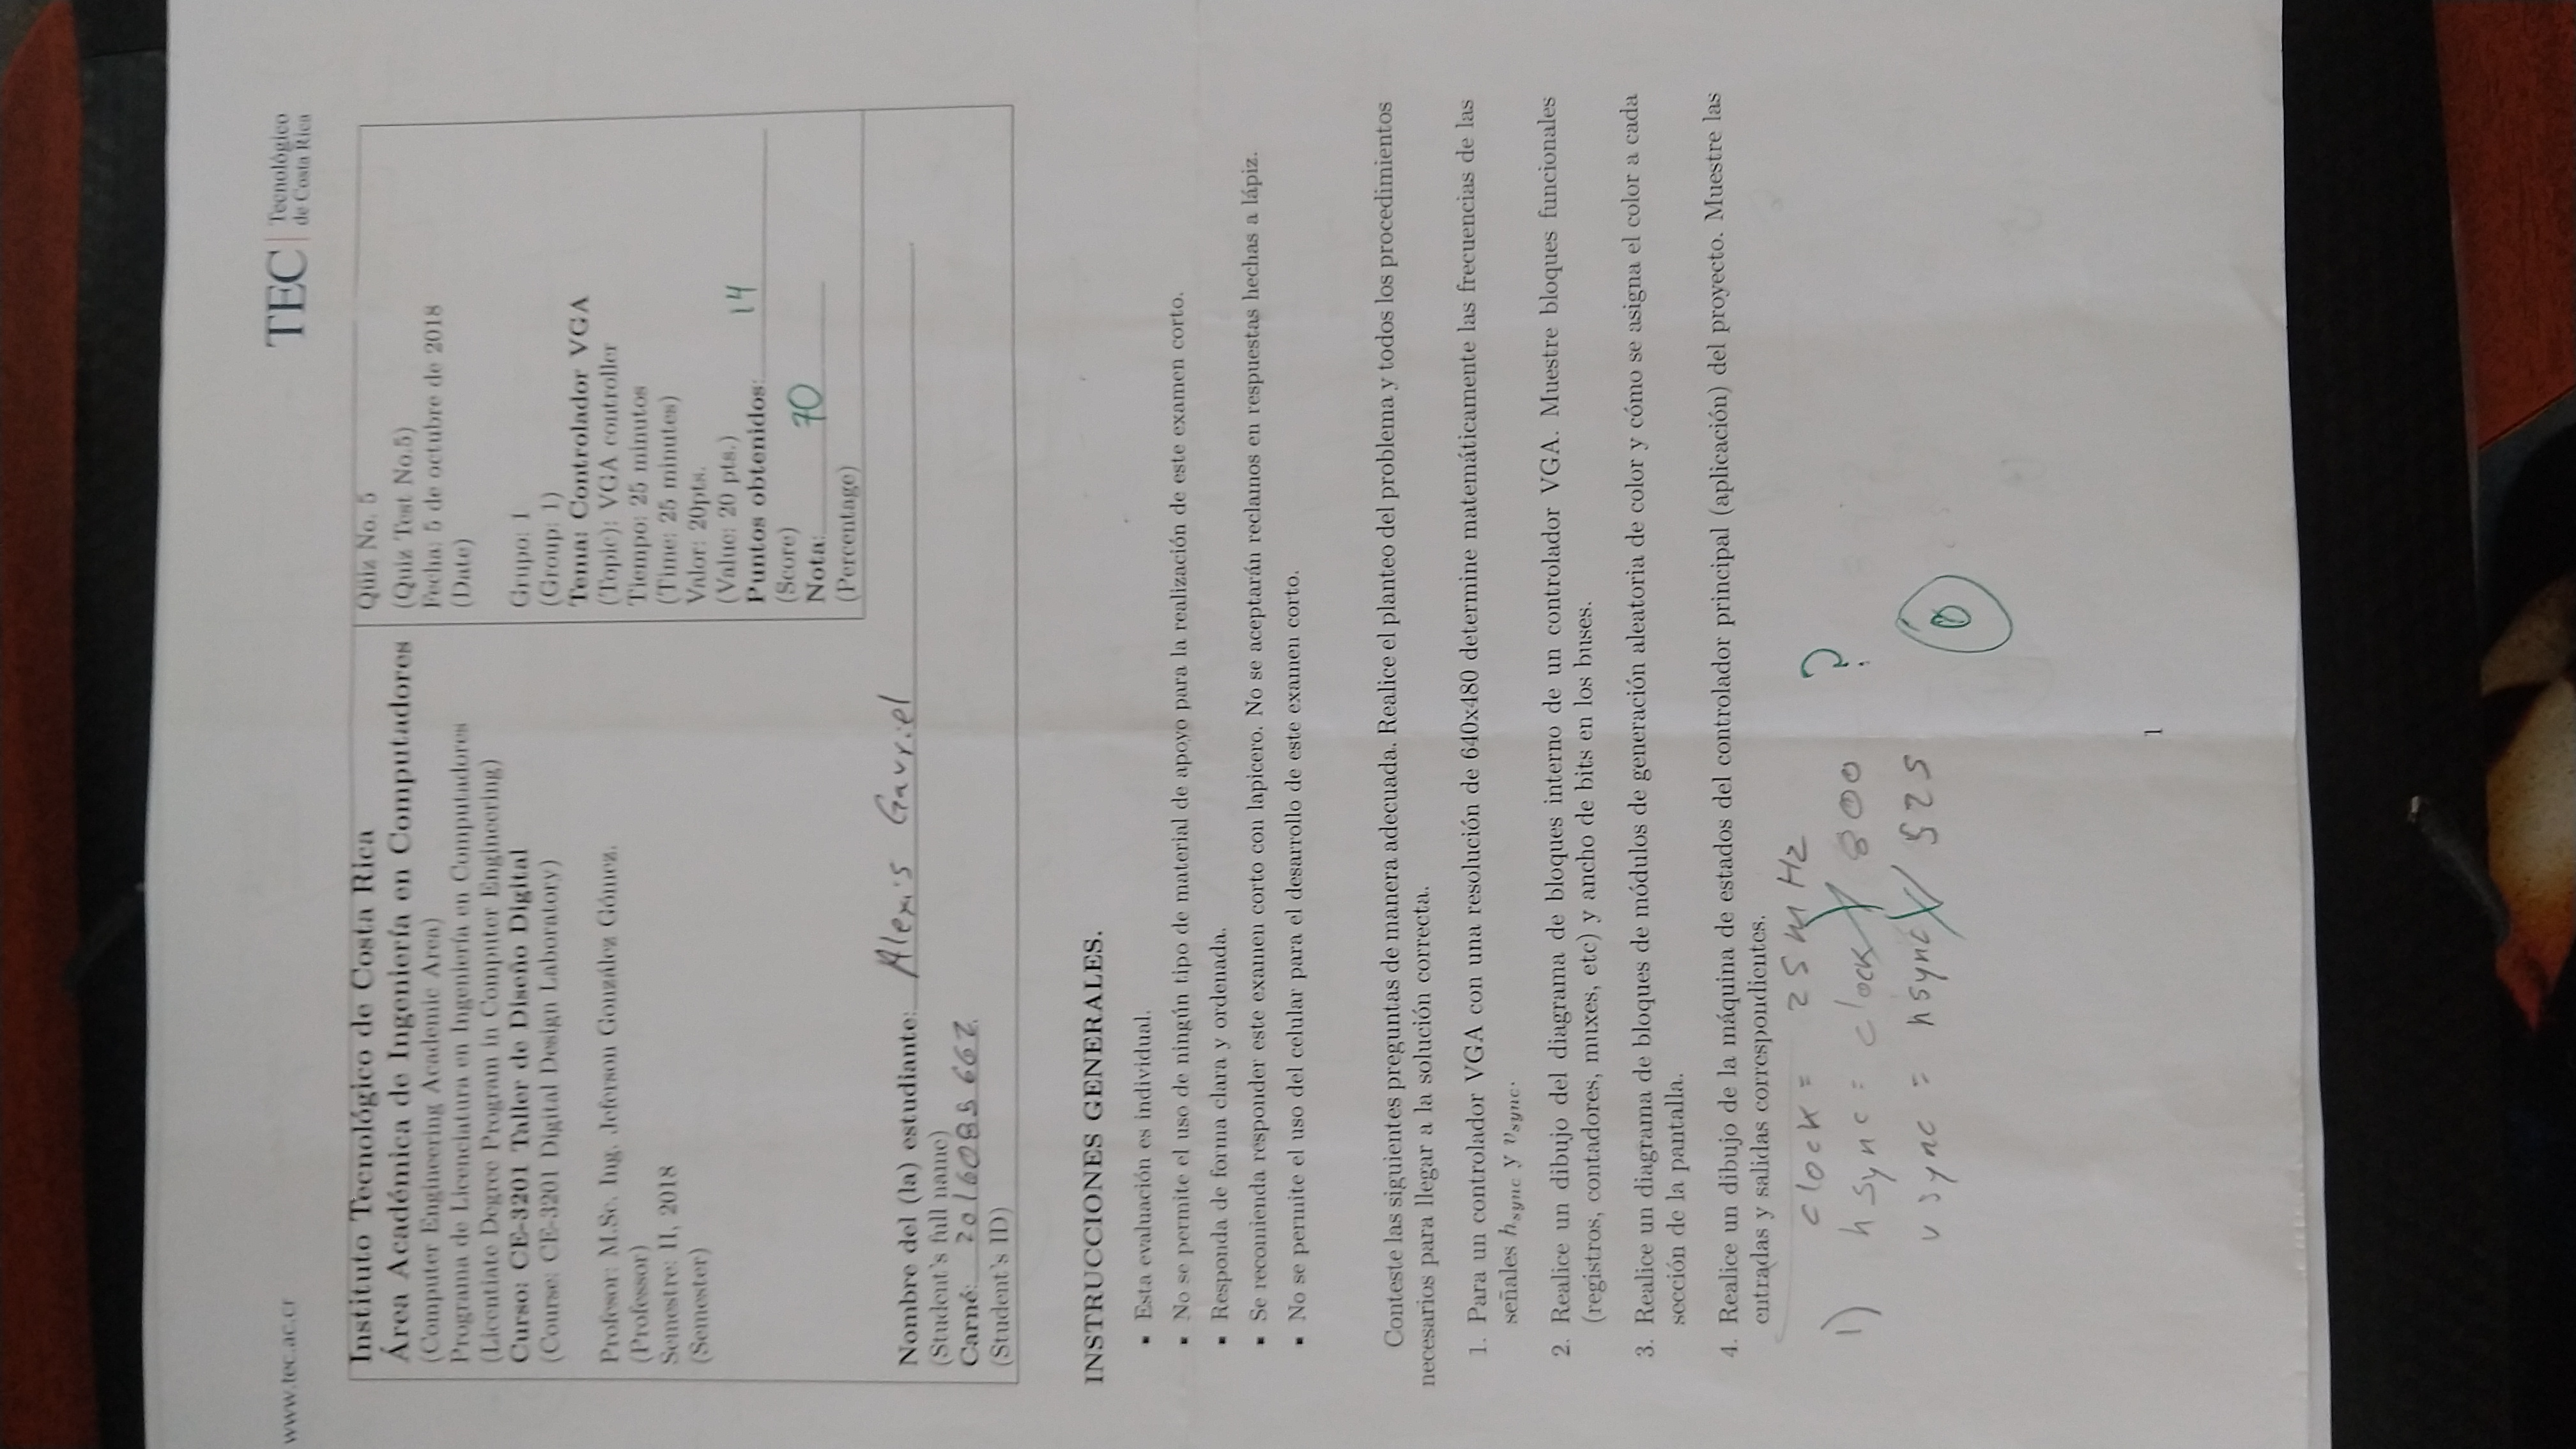 www.tec.ac.cr
TEC | Tecnológico
de Costa Rica
Instituto Tecnológico de Costa Rica
Área Académica de Ingeniería en Computadores
(Computer Engineering Academic Area)
Programa de Licenciatura en Ingeniería en Computadores
(Licentiate Degree Program in Computer Engineering)
Curso: CE-3201 Taller de Diseño Digital
(Course: CE-3201 Digital Design Laboratory)
Profesor: M.Sc. Ing. Jeferson González Gómez.
(Professor)
Semestre: II, 2018
(Semester)
Quiz No. 5
(Quiz Test No.5)
Fecha: 5 de octubre de 2018
(Date)
Grupo: 1
(Group: 1)
Tema: Controlador VGA
(Topic): VGA controller
Tiempo: 25 minutos
(Time: 25 minutes)
Valor: 20pts.
(Value: 20 pts.)
Puntos obtenidos: 14
(Score)
Nota: 70
(Percentage)
Nombre del (la) estudiante: Alexis Gavriel
(Student's full name)
Carné: 2016085662
(Student's ID)
INSTRUCCIONES GENERALES.
▪ Esta evaluación es individual.
▪ No se permite el uso de ningún tipo de material de apoyo para la realización de este examen corto.
▪ Responda de forma clara y ordenada.
▪ Se recomienda responder este examen corto con lapicero. No se aceptarán reclamos en respuestas hechas a lápiz.
▪ No se permite el uso del celular para el desarrollo de este examen corto.
Conteste las siguientes preguntas de manera adecuada. Realice el planteo del problema y todos los procedimientos
necesarios para llegar a la solución correcta.
1. Para un controlador VGA con una resolución de 640x480 determine matemáticamente las frecuencias de las
señales hsync y vsync.
2. Realice un dibujo del diagrama de bloques interno de un controlador VGA. Muestre bloques funcionales
(registros, contadores, muxes, etc) y ancho de bits en los buses.
3. Realice un diagrama de bloques de módulos de generación aleatoria de color y cómo se asigna el color a cada
sección de la pantalla.
4. Realice un dibujo de la máquina de estados del controlador principal (aplicación) del proyecto. Muestre las
entradas y salidas correspondientes.
clock = 25 MHz
1) hsync = clock / 800 ?
vsync = hsync / 525
0
1